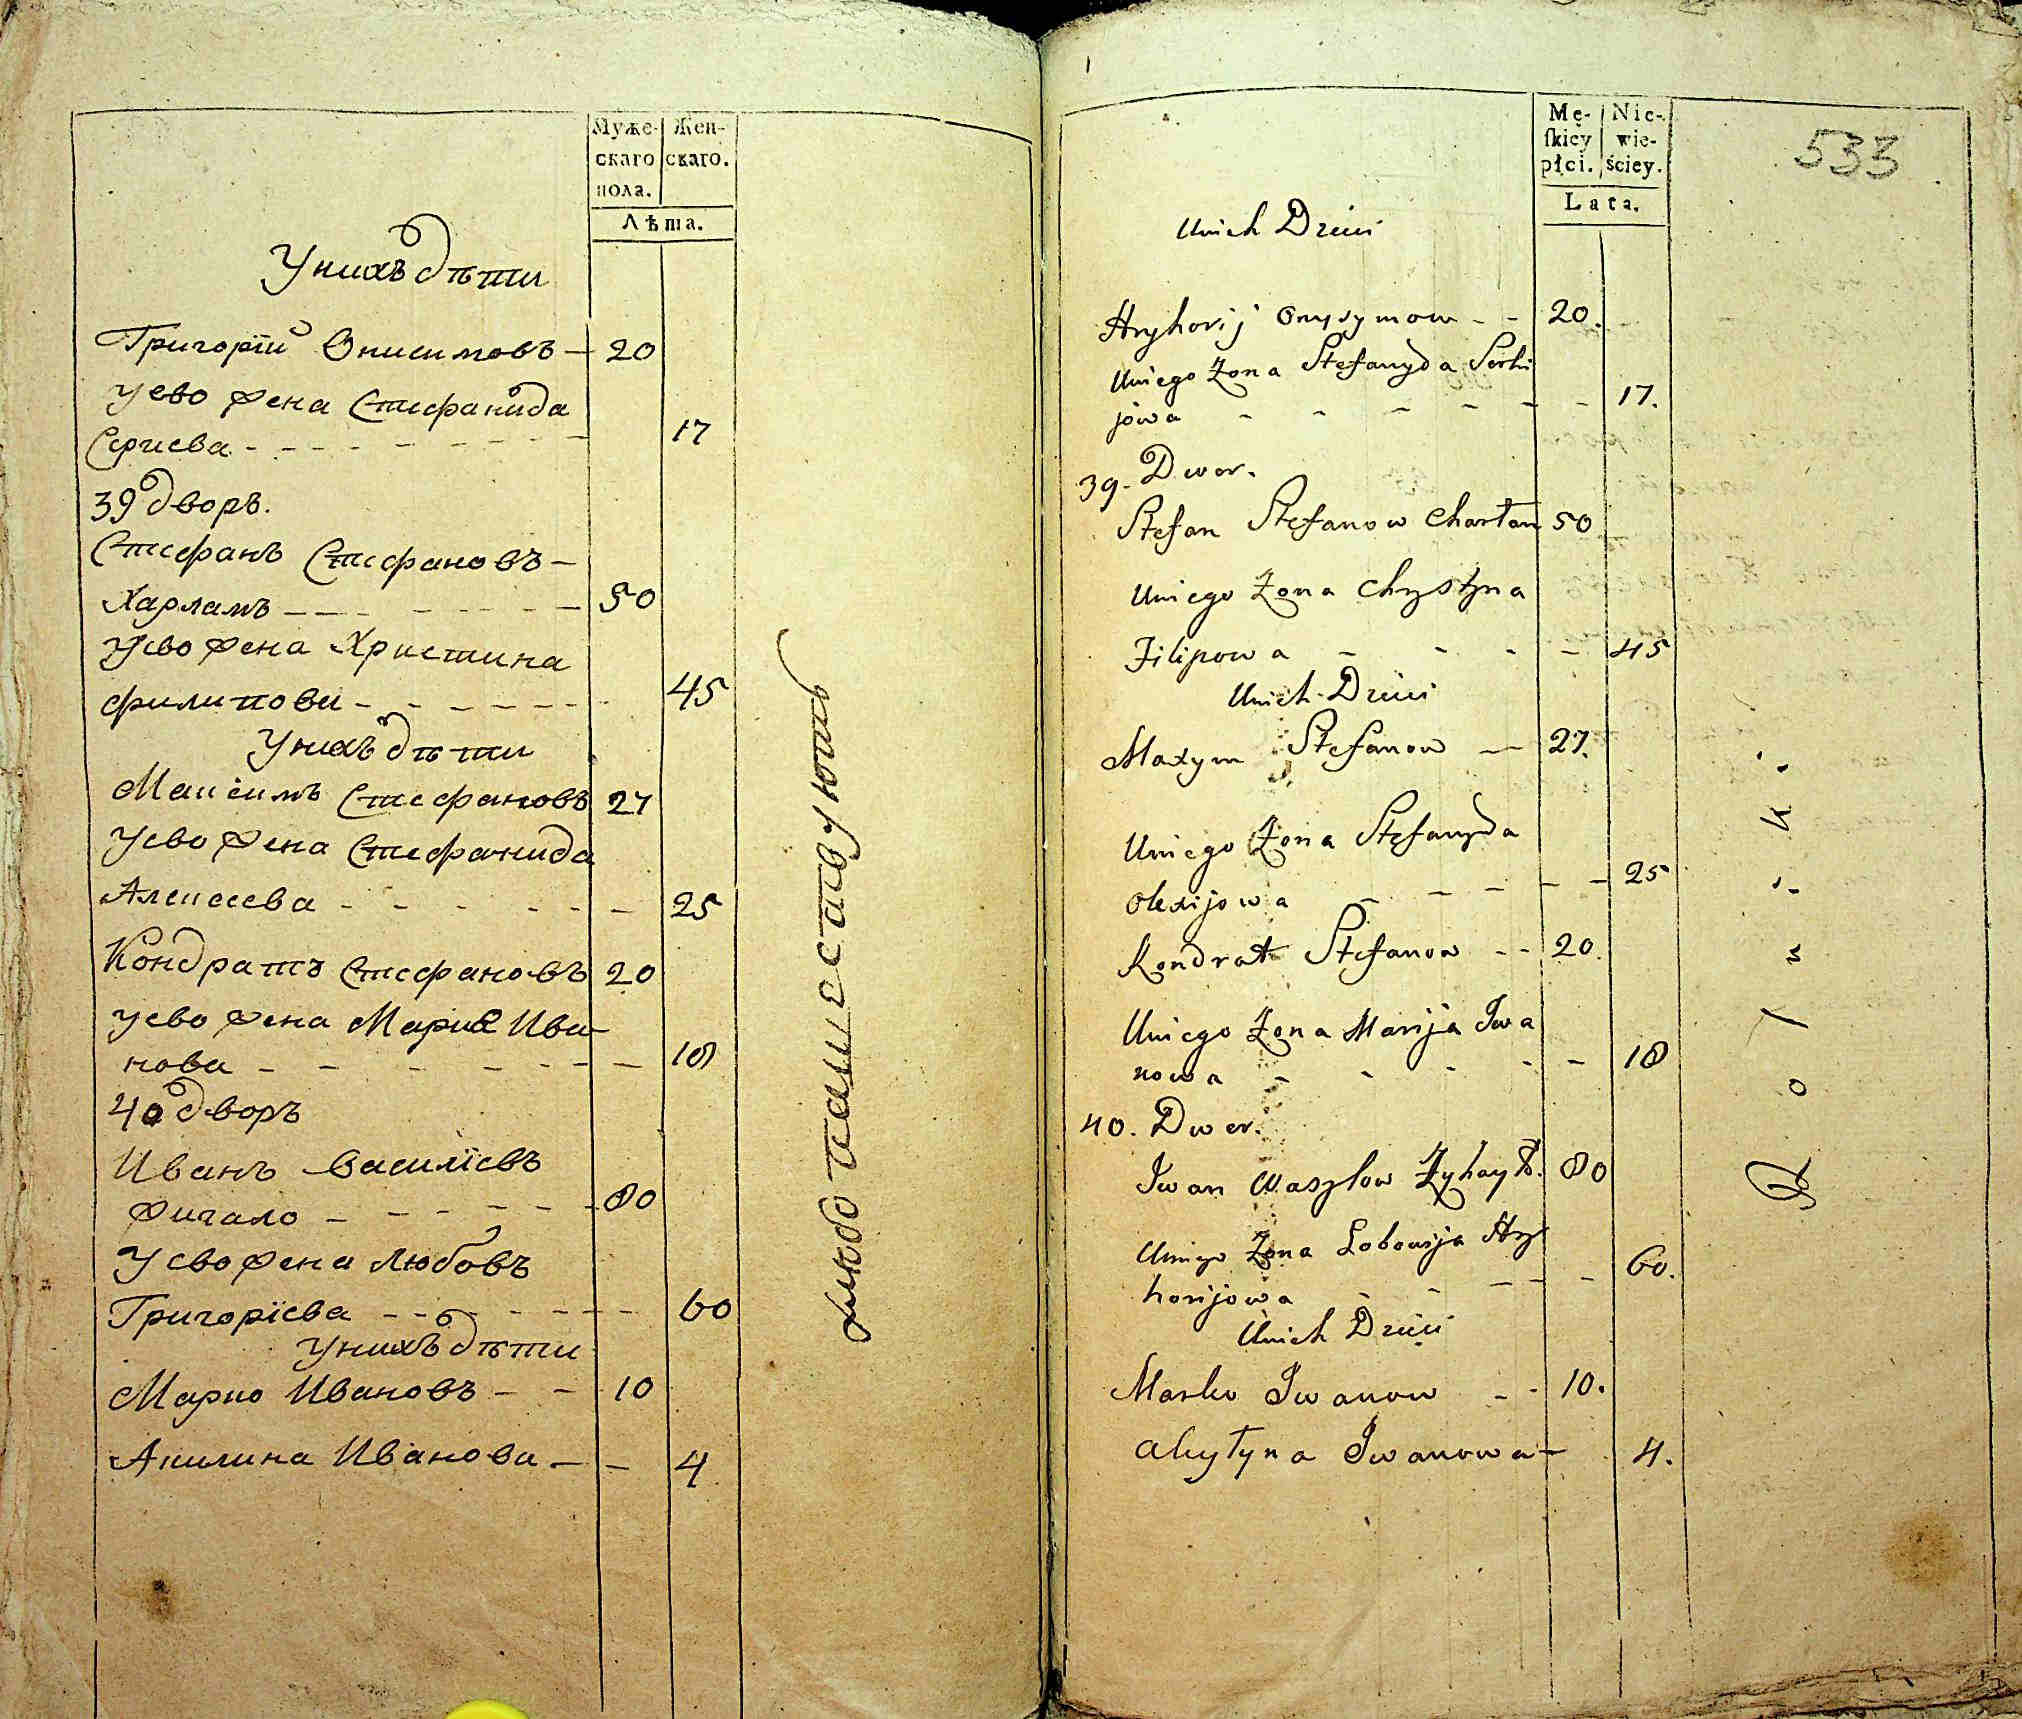 Муже-
скаго
пола.
Жен-
скаго.
Лѣта.
У нихъ дѣти
Григорїй Онисимовъ — 20
У ево жена Стефанида
Сергиева - - - - - - - - 17
39 дворъ.
Стефанъ Стефановъ —
Харламъ - - - - - - - 50
У ево жена Христина
Филипова - - - - - - 45
У нихъ дѣти
Максимъ Стефановъ 27
У ево жена Стефанида
Алексеева - - - - - - 25
Кондратъ Стефановъ 20
У ево жена Мария Ива-
нова - - - - - - - 18
40 дворъ
Иванъ Василїевъ
Жигало - - - - - - 80
У ево жена Любовъ
Григорїева - - - - - - - 60
У нихъ дѣти
Марко Ивановъ - - 10
Акилина Иванова - - 4
533
Mę-
ſkiey
płci.
Nie-
wie-
ściey.
Lata.
Unich Dzieci
Hryhorij Onysymow - - 20.
Uniego Żona Stefanyda Serhi
jowa - - - - - - 17.
39. Dwor.
Stefan Stefanow Charłam 50
Uniego Żona Chrystyna
Filipowa - - - - 45
Unich Dzieci
Maxym Stefanow — 27.
Uniego Żona Stefanyda
Olexijowa - - - - - 25
Kondrat Stefanow - - 20.
Uniego Żona Marija Iwa
nowa - - - - - 18
40. Dwor.
Iwan Wasylow 80
Uniego Żona Hry
horijowa - - - - - 60.
Unich Dzieci
Marko Iwanow - - 10.
Akyłyna Iwanowa — 4.